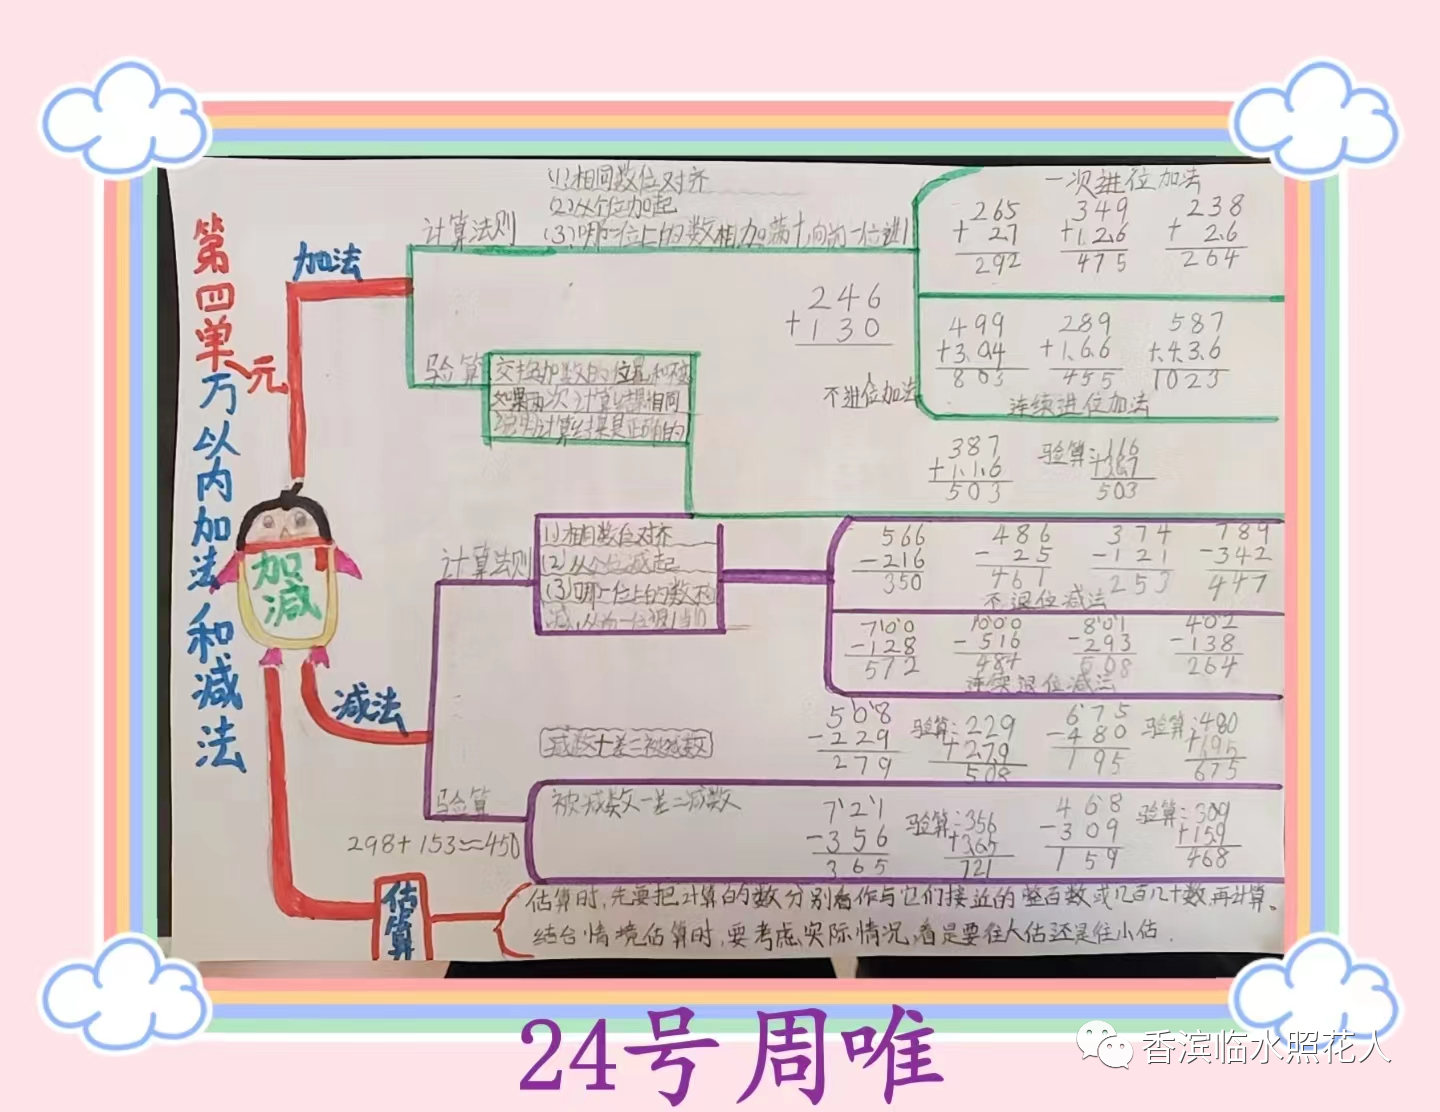 第四单元
万以内加法和减法
加减
加法
计算法则
(1)相同数位对齐
(2)从个位加起
(3)哪一位上的数相加满十,向前一位进1
一次进位加法
265
+ 27
292
349
+126
475
238
+ 26
264
246
+130
不进位加法
499
+304
803
289
+166
455
587
+436
1023
连续进位加法
验算
交换加数的位置和不变
如果两次计算结果相同
说明计算结果是正确的
387
+116
503
验算:116
+387
503
减法
计算法则
(1)相同数位对齐
(2)从个位减起
(3)哪一位上的数不
减,从前一位退1当10
566
-216
350
486
- 25
461
374
-121
253
789
-342
447
不退位减法
700
-128
572
1000
-516
484
801
-293
508
402
-138
264
连续退位减法
验算
减数+差=被减数
508
-229
279
验算:229
+279
508
675
-480
195
验算:480
+195
675
被减数-差=减数
721
-356
365
验算:356
+365
721
468
-309
159
验算:309
+159
468
298+153≈450
估算
估算时,先要把计算的数分别看作与它们接近的整百数或几百几十数,再计算。
结合情境估算时,要考虑实际情况,看是要往大估还是往小估.
24号周唯
香滨临水照花人